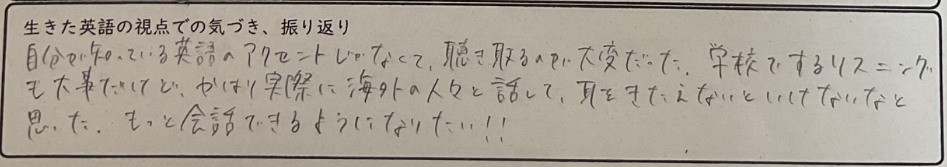 生きた英語の視点での気づき、振り返り
自分が知っている英語のアクセントじゃなくて、聴き取るのが大変だった。学校でするリスニング
も大事だけど、やはり実際に海外の人々と話して、耳をきたえないといけないなと
思った。もっと会話できるようになりたい!!